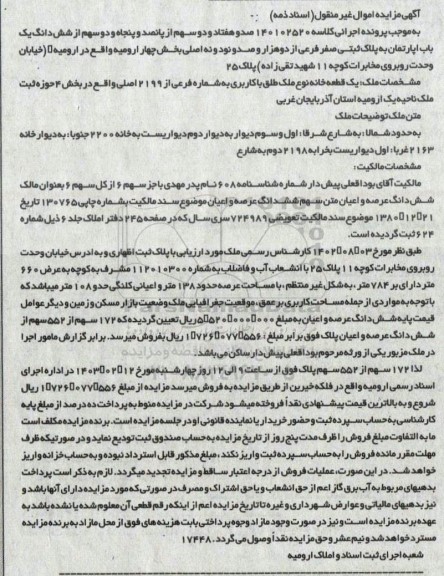 آگهی مزایده اموال غیر منقول (اسناد ذمه)
به موجب پرونده اجرائی کلاسه ۱۴۰۱۰۲۵۲۰ صد و هفتاد و دو سهم از پانصد و پنجاه و دو سهم از شش دانگ یک
باب اپارتمان به پلاک ثبتی صفر فرعی از دو هزار و صد و نود و نه اصلی بخش چهار ارومیه واقع در ارومیه (خیابان
وحدت روبروی مخابرات کوچه ۱۱ شهید تقی زاده) پلاک ۲۵
مشخصات ملک: یک قطعه خانه نوع ملک طلق با کاربری به شماره فرعی از ۲۱۹۹ اصلی واقع در بخش ۴ حوزه ثبت
ملک ناحیه یک ارومیه استان آذربایجان غربی
متن ملک توضیحات ملک
به حدود شمالا: به شارع شرقا: اول و سوم دیوار به دیوار دوم دیواریست به خانه ۲۲۰۰ جنوبا: به دیوار خانه
۲۱۶۳ غربا: اول دیواریست بخرابه ۲۱۹۸ دوم به شارع
مشخصات مالکیت:
مالکیت آقای یوداقعلی پیش دار شماره شناسنامه ۶۰۸ نام پدر مهدی با جز سهم ۶ از کل سهم ۶ بعنوان مالک
شش دانگ عرصه و اعیان متن سهم ششدانگ عرصه و اعیان موضوع سند مالکیت بشماره چاپی ۱۳۰۷۶۵ تاریخ
۱۳۸۰/۱۲/۲۱ موضوع سند مالکیت تعویضی ۷۲۴۹۸۹ سری سال که در صفحه ۲۴۵ دفتر املاک جلد ۶ ذیل شماره
۶۲۴ ثبت گردیده است.
طبق نظر مورخ ۱۴۰۲/۰۸/۰۳ کارشناس رسمی ملک مورد ارزیابی با پلاک ثبت اظهاری و به ادرس خیابان وحدت
روبروی مخابرات کوچه ۱۱ پلاک ۲۵ با انشعاب آب و فاضلاب به شماره ۱۱۲۰۱۰۳۰۰ مشرف به کوچه به عرض ۶۶۰
متر دارای بر ۷۸۴ متر، به شکل غیر منتظم، با مساحت عرصه حدود ۱۳۸ متر و اعیانی کلنگی حدود ۱۰۸ متر میباشد که
با توجه به مواردی از جمله مساحت کاربری بر عمق، موقعیت جغرافیایی ملک وضعیت بازار مسکن و زمین و دیگر عوامل
قیمت پایه شش دانگ عرصه و اعیان به مبلغ ۵۵۲۰۰۰۰۰۰۰ ریال تعیین گردیده که ۱۷۲ سهم از ۵۵۲ سهم از
شش دانگ عرصه و اعیان پلاک فوق برابر مبلغ ۱۷۲۶۰۷۷۵۵۶ ریال بفروش میرسد. برابر گزارش مامور اجرا
در ملک مزبور یکی از ورثه مرحوم یوداقعلی پیش دار ساکن می باشد.
لذا ۱۷۲ سهم از ۵۵۲ سهم پلاک فوق از ساعت ۹ الی ۱۲ روز چهارشنبه مورخ ۱۴۰۳/۰۲/۱۲ در اداره اجرای
اسناد رسمی ارومیه واقع در فلکه خیرین از طریق مزایده به فروش میرسد مزایده از مبلغ ۱۷۲۶۰۷۷۵۵۶ ریال
شروع و به بالاترین قیمت پیشنهادی نقداً فروخته میشود شرکت در مزایده منوط به پرداخت ده درصد از مبلغ پایه
کارشناسی به حساب سپرده ثبت و حضور خریدار یا نماینده قانونی او در جلسه مزایده است. برنده مزایده مکلف است
ما به التفاوت مبلغ فروش را ظرف مدت پنج روز از تاریخ مزایده به حساب صندوق ثبت تودیع نماید و در صورتیکه ظرف
مهلت مقرر مانده فروش را به حساب سپرده ثبت واریز نکند، مبلغ مذکور قابل استرداد نبوده و به حساب خزانه واریز
خواهد شد. در این صورت، عملیات فروش از درجه اعتبار ساقط و مزایده تجدید میگردد. لازم به ذکر است پرداخت
بدهیهای مربوط به آب برق گاز اعم از حق انشعاب و یا حق اشتراک و مصرف در صورتی که مورد مزایده دارای آنها باشد و
نیز بدهیهای مالیاتی و عوارض شهرداری و غیره تا تاریخ مزایده اعم از اینکه رقم قطعی آن معلوم شده یا نشده باشد به
عهده برنده مزایده است و نیز در صورت وجود مازاد وجوه پرداختی بابت هزینه های فوق از محل مازاد به برنده مزایده
مسترد خواهد شد و نیم عشر و حق مزایده نقداً وصول می گردد. ۱۷۴۴۸
شعبه اجرای ثبت اسناد و املاک ارومیه